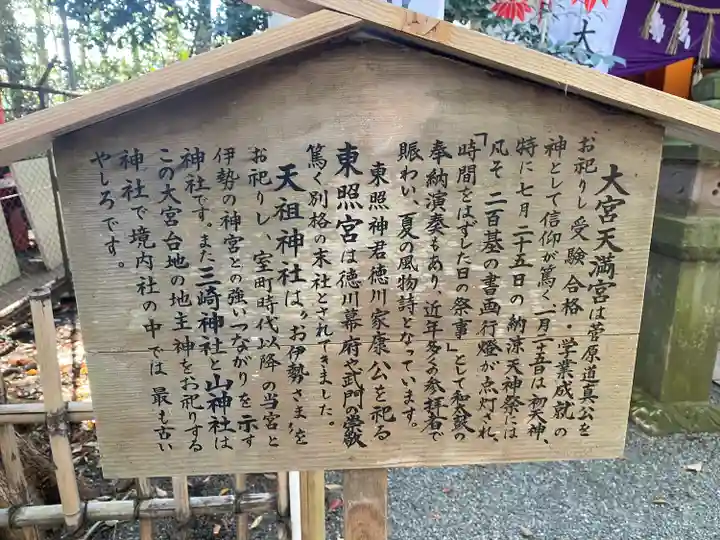 大宮天満宮は菅原道真公を
お祀りし受験合格・学業成就の
神として信仰が篤く一月二十五日は初天神、
特に七月二十五日の納涼天神祭には
凡そ二百基の書画行燈が点灯され、
「時間をはずした日の祭事」として和太鼓の
奉納演奏もあり、近年多くの参拝者で
賑わい、夏の風物詩となっています。
東照神君徳川家康公を祀る
東照宮は徳川幕府や武門の崇敬
篤く別格の末社とされてきました。
天祖神社は、〝お伊勢さま〟を
お祀りし、室町時代以降の当宮と
伊勢の神宮との強いつながりを示す
神社です。また三崎神社と山神社は
この大宮台地の地主神をお祀りする
神社で境内社の中では最も古い
やしろです。
大